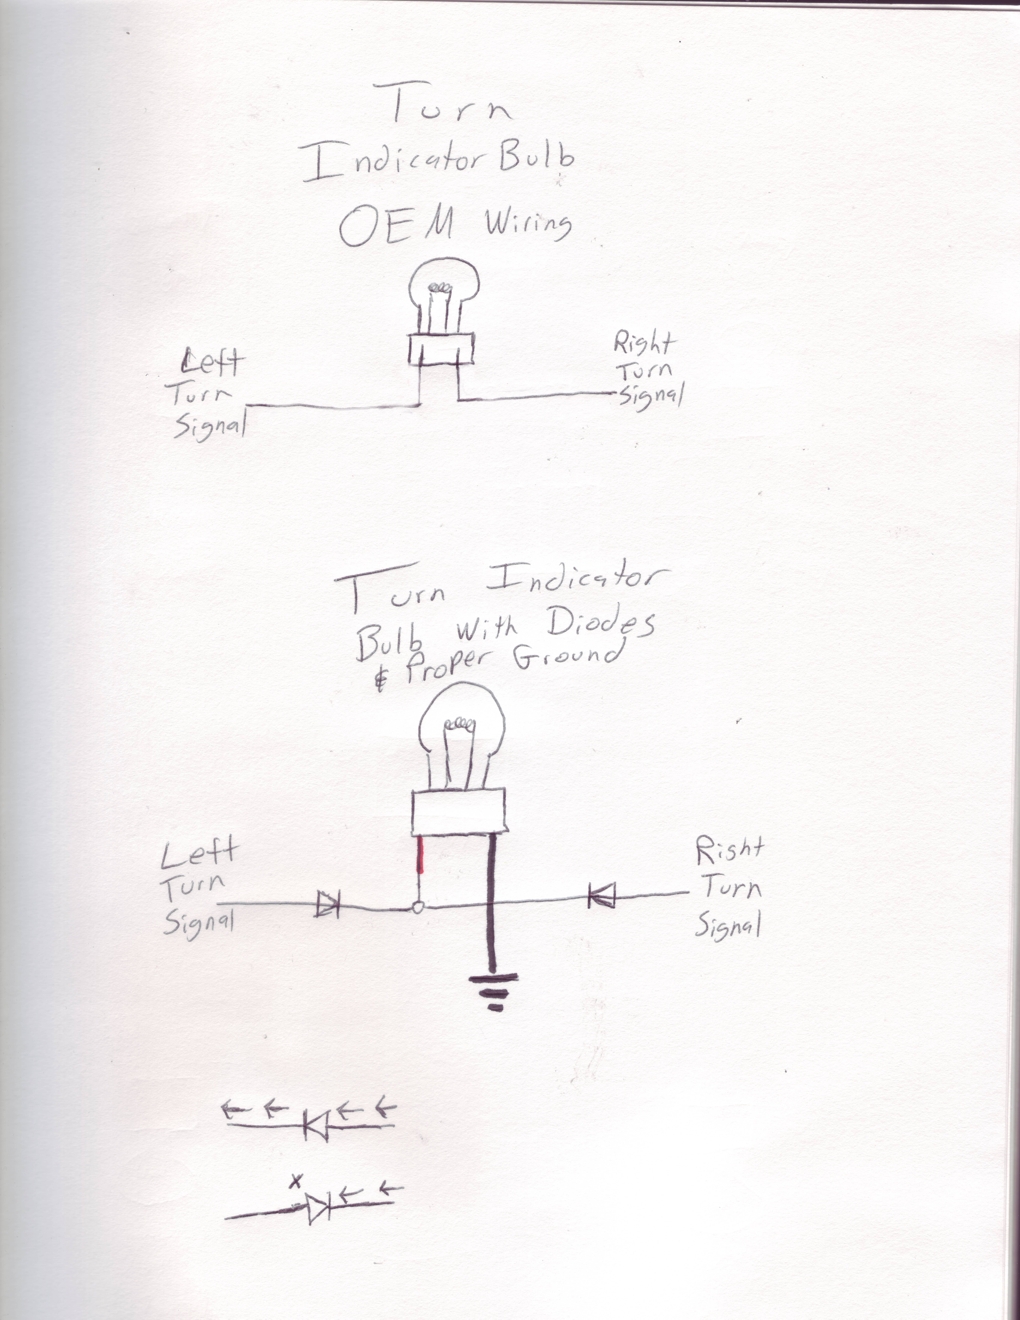 Turn
Indicator Bulb
OEM Wiring
Left
Turn
Signal
Right
Turn
Signal
Turn Indicator
Bulb With Diodes
& Proper Ground
Left
Turn
Signal
Right
Turn
Signal
x